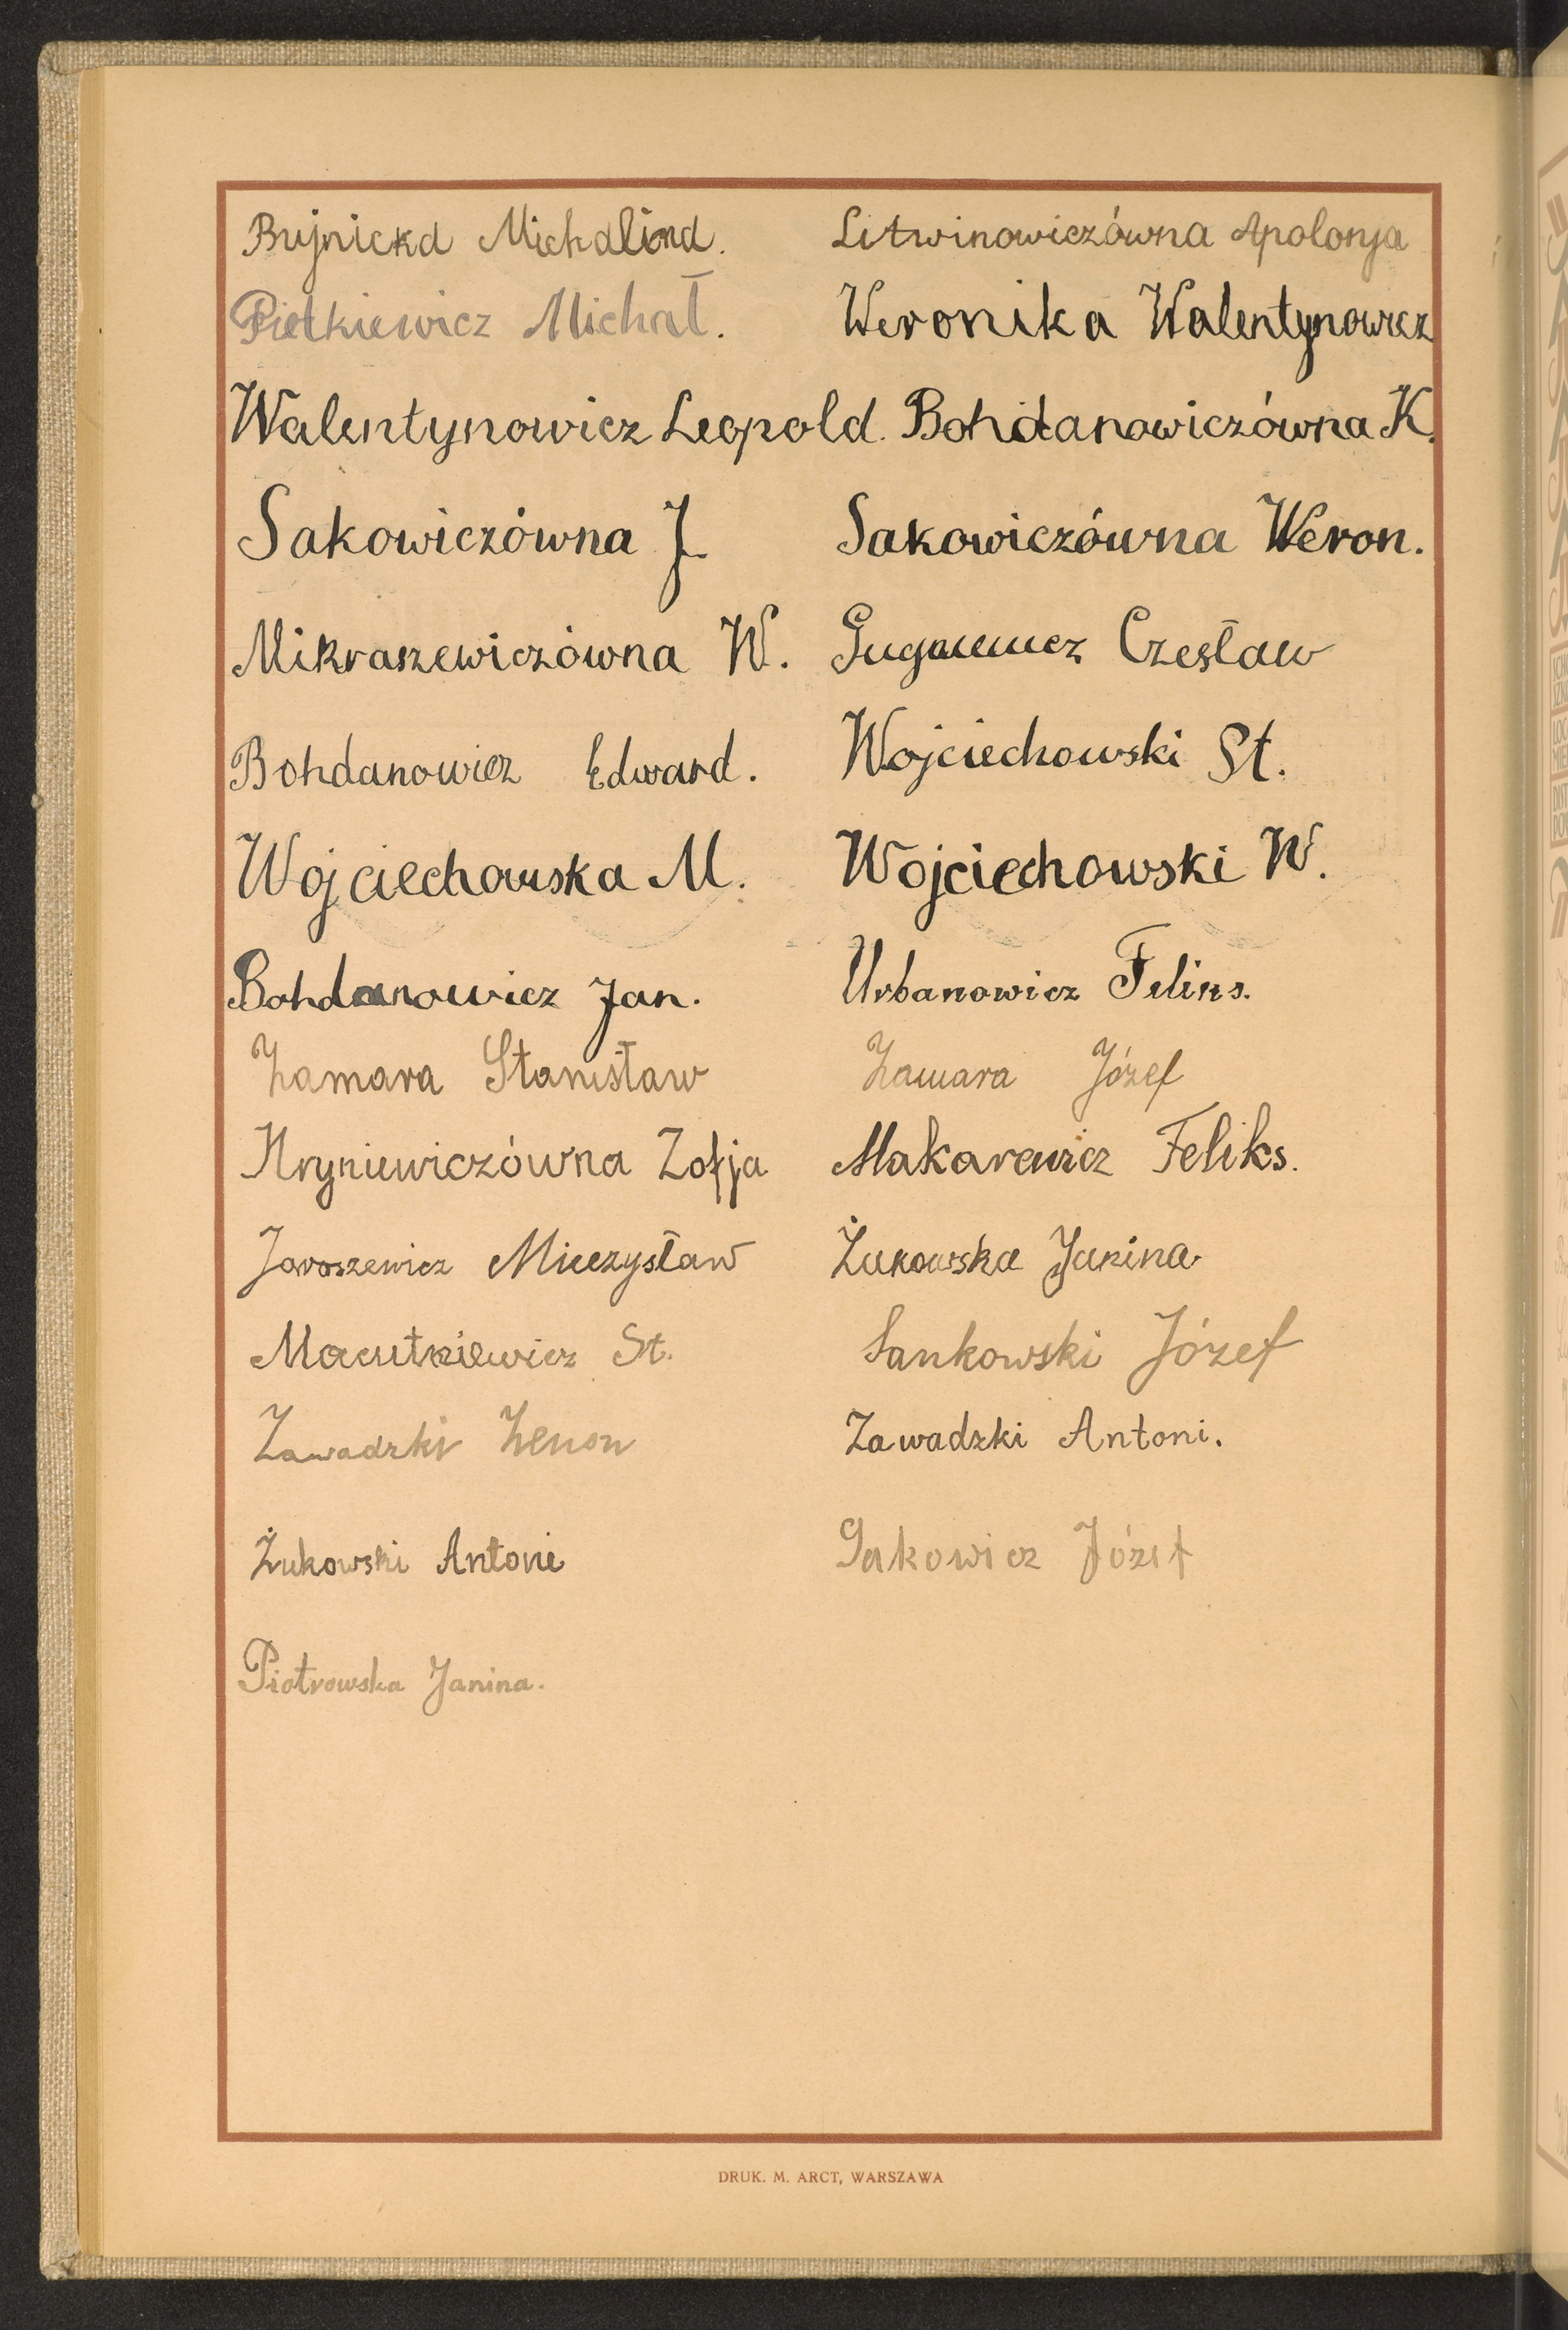 Bujnicka Michalina. Litwinowiczówna Apolonja
Pietkiewicz Michał. Weronika Walentynowicz
Walentynowicz Leopold. Bohdanowiczówna K.
Sakowiczówna J. Sakowiczówna Weron.
Mikraszewiczówna W. Czesław
Bohdanowicz Edward. Wojciechowski St.
Wojciechowska M. Wojciechowski W.
Bohdanowicz Jan. Urbanowicz Feliks.
Zamara Stanisław Zamara Józef
Hryniewiczówna Zofja Makarewicz Feliks.
Jaroszewicz Mieczysław Żukowska Janina
Macutkiewicz St. Sankowski Józef
Zawadzki Zenon Zawadzki Antoni.
Żukowski Antoni Sakowicz Józef
Piotrowska Janina.
DRUK. M. ARCT, WARSZAWA